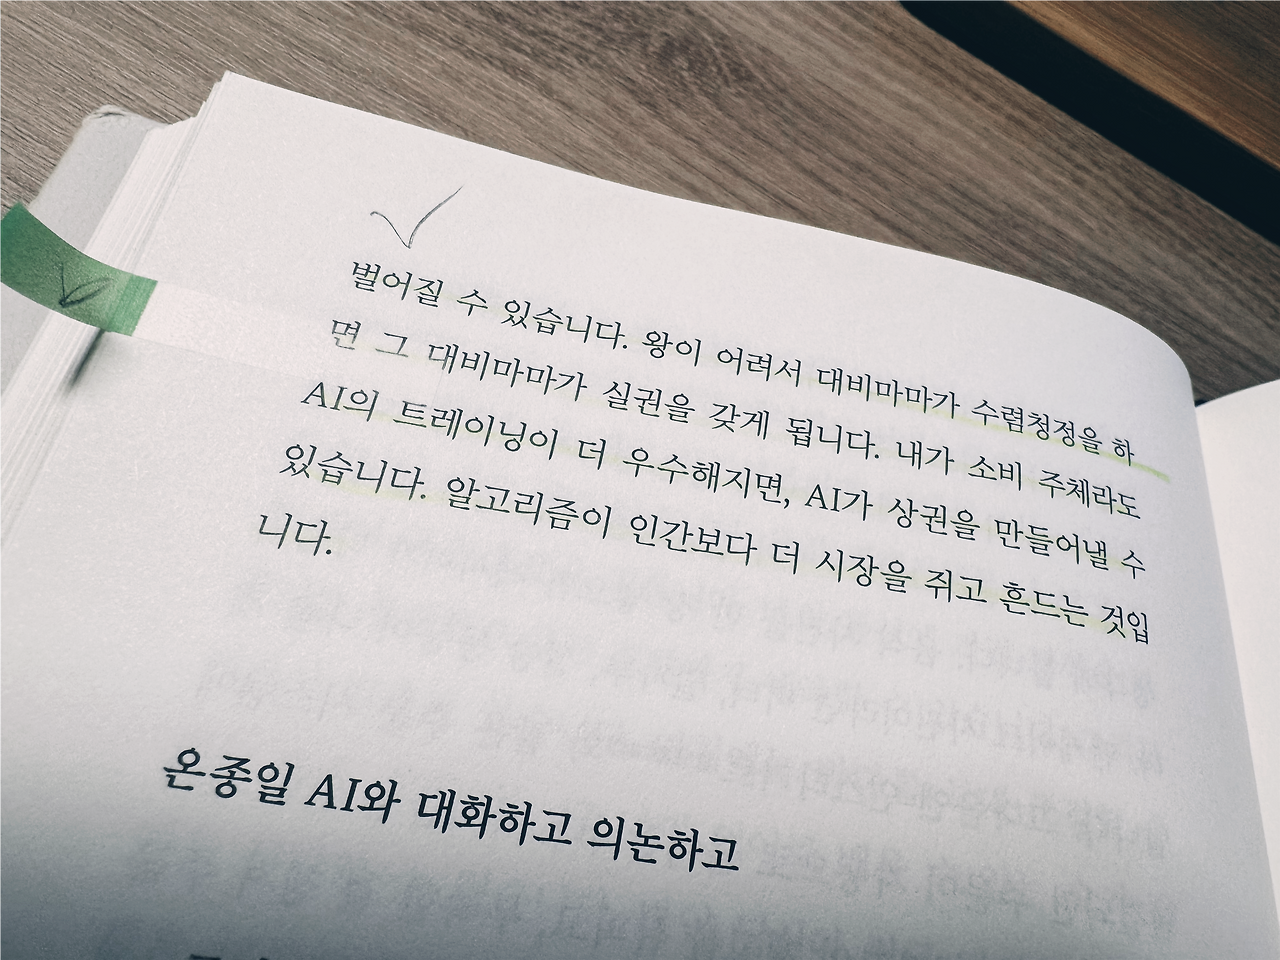 벌어질 수 있습니다. 왕이 어려서 대비마마가 수렴청정을 하
면 그 대비마마가 실권을 갖게 됩니다. 내가 소비 주체라도
AI의 트레이닝이 더 우수해지면, AI가 상권을 만들어낼 수
있습니다. 알고리즘이 인간보다 더 시장을 쥐고 흔드는 것입
니다.
온종일 AI와 대화하고 의논하고